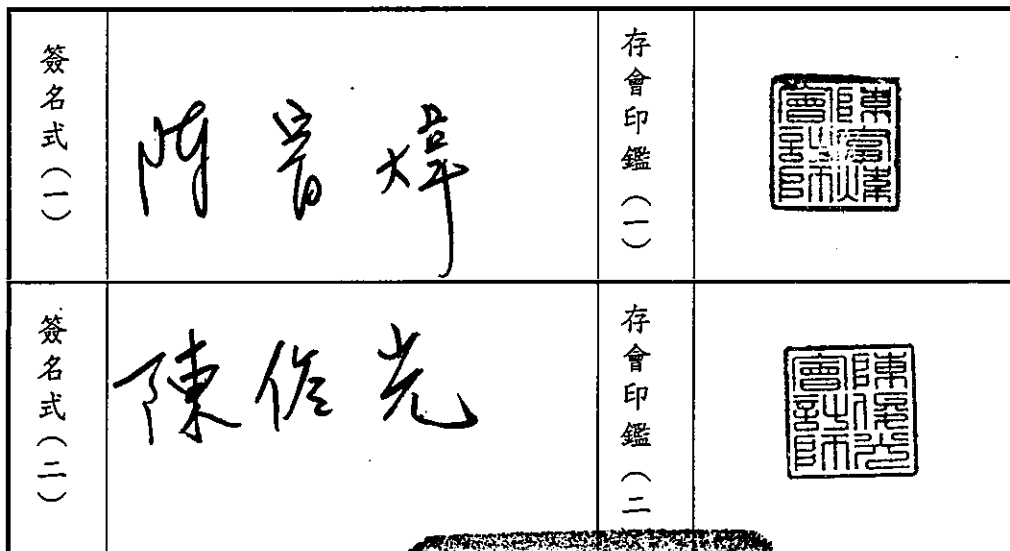 簽名式（一）
陳富煒
存會印鑑（一）
陳富煒
會計師
簽名式（二）
陳俊光
存會印鑑（二
陳俊光
會計師